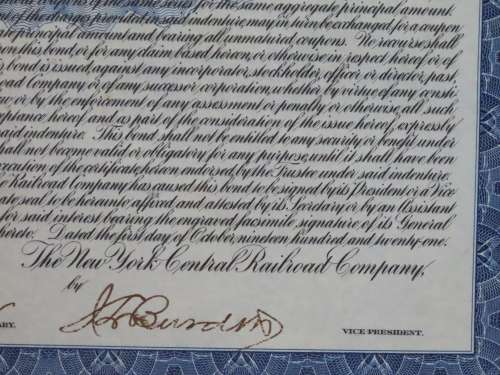 of the same series for the same aggregate principal amount.
of the charges provided in said indenture may in turn be exchanged for a coupon
ate principal amount and bearing all unmatured coupons. No recourse shall
on this bond, or for any claim based hereon, or otherwise in respect hereof or of
is bond is issued against any incorporator, stockholder, officer or director, past,
road Company or of any successor corporation, whether by virtue of any consti-
w or by the enforcement of any assessment or penalty or otherwise, all such
eptance hereof and as part of the consideration of the issue hereof, expressly
said indenture. This bond shall not be entitled to any security or benefit under
all not become valid or obligatory for any purpose, until it shall have been
ecution of the certificate hereon endorsed by the Trustee under said indenture.
l Railroad Company has caused this bond to be signed by its President or a Vice
ate seal to be hereunto affixed and attested by its Secretary or by an Assistant
for said interest bearing the engraved facsimile signature of its General
hereto. Dated the first day of October, nineteen hundred and twenty-one.
The New York Central Railroad Company,
by
ARY.
VICE-PRESIDENT.